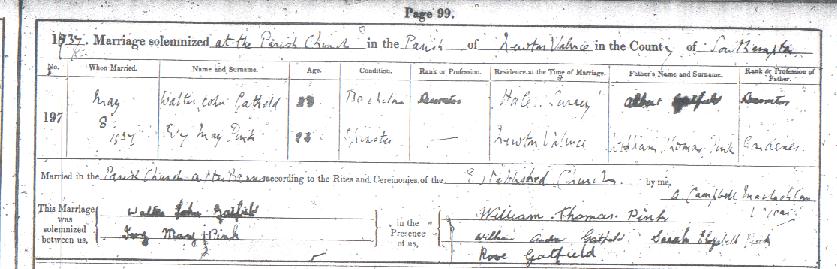 Page 99.
1937. Marriage solemnized at the Parish Church in the Parish of Newton Valence in the County of Southampton
No. When Married. Name and Surname. Age. Condition. Rank or Profession. Residence at the Time of Marriage. Father's Name and Surname. Rank or Profession of Father.
197 May 8 1937 Walter John Gatfield Bachelor Hale Surrey Gatfield
Ivy May Pink Spinster — Newton Valence William Thomas Pink Gardener
Married in the Parish Church after Banns according to the Rites and Ceremonies of the Established Church by me,
A Campbell
Vicar
This Marriage was solemnized between us,
Walter John Gatfield
Ivy May Pink
in the Presence of us,
William Thomas Pink
William Gatfield Sarah Elizabeth Pink
Rose Gatfield